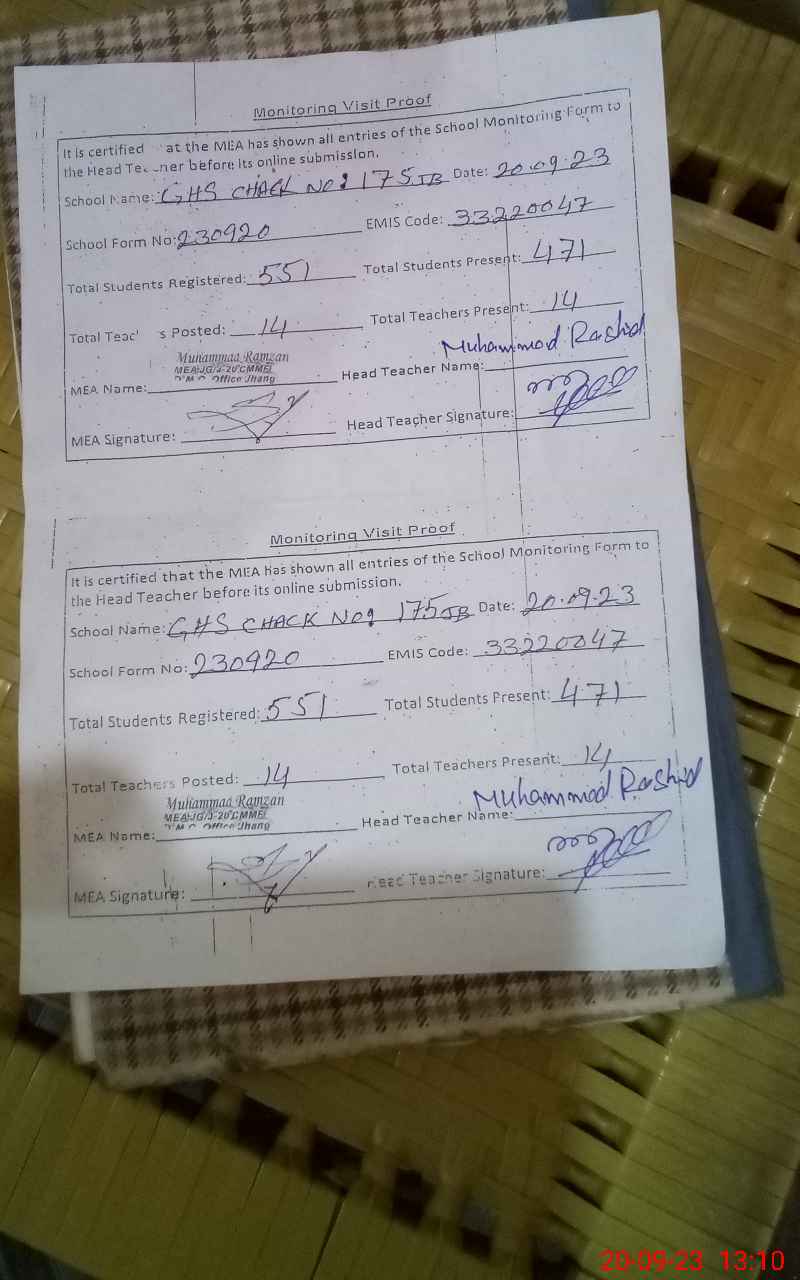 Monitoring Visit Proof
It is certified at the MEA has shown all entries of the School Monitoring Form to
the Head Te ner before its online submission.
School Name: GHS CHACK NO: 175 JB Date: 20.09.23
School Form No: 230920 EMIS Code: 33220047
Total Students Registered: 551 Total Students Present: 471
Total Teac s Posted: 14 Total Teachers Present: 14
Muhammad Ramzan
MEA/JG/J-20 CMMEF
Office Jhang
MEA Name: Head Teacher Name: Muhammad Rashid
MEA Signature: Head Teacher Signature:
Monitoring Visit Proof
It is certified that the MEA has shown all entries of the School Monitoring Form to
the Head Teacher before its online submission.
School Name: GHS CHACK NO: 175 JB Date: 20.09.23
School Form No: 230920 EMIS Code: 33220047
Total Students Registered: 551 Total Students Present: 471
Total Teachers Posted: 14 Total Teachers Present: 14
Muhammad Ramzan
MEA/JG/J-20 CMMEF
Office Jhang
MEA Name: Head Teacher Name: Muhammad Rashid
MEA Signature: Head Teacher Signature:
20-09-23 13:10